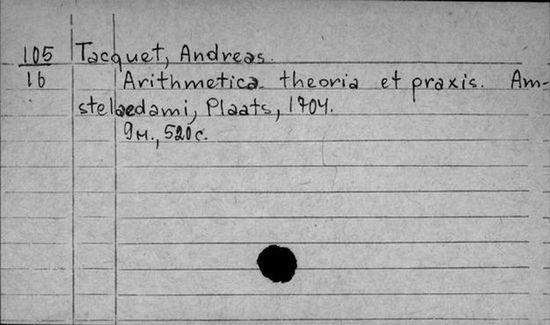 105 Tacquet, Andreas.
16 Arithmetica theoria et praxis. Am-
stelaedami, Plaats, 1704.
9м., 520с.